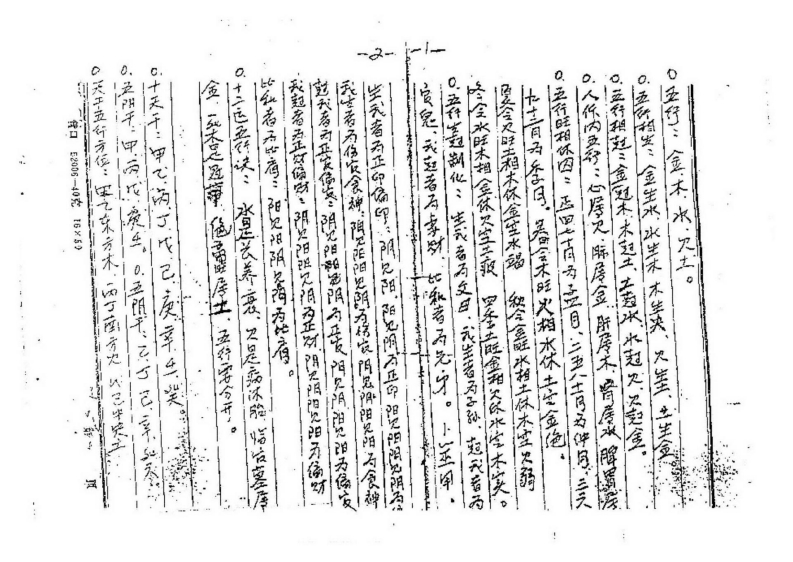 -1-
0 五行：金 木 水 火 土。
0. 五行相生：金生水 水生木 木生火 火生土 土生金
0. 五行相克：金克木 木克土 土克水 水克火 火克金。
0. 人体内五行：心属火 肺属金 肝属木 肾属水 脾胃属
0. 五行旺相休囚：正四七十月为孟月、二五八十一月为仲月、三六
九十二月为季月。春令木旺火相水休土 金绝。
夏令火旺土相木休金 水弱 秋令金旺水相土休木 火弱
冬令水旺木相金休火 土 四季土旺金相火休水 木 。
0. 五行生克制化：生我者为父母 我生者为子孙 克我者为
官鬼 我克者为妻财 比和者为兄弟。
-2-
生我者为正印偏印：阴见阳 阳见阴为正印 阳见阳阴见阴为
我生者为伤官食神 阴见阳阳见阴为伤官 阴见阴阳见阳为食神
克我者为正官偏官：阴见阳阳见阴为正官 阴见阴阳见阳为偏官
我克者为正财偏财：阴见阳阳见阴为正财 阴见阴阳见阳为偏财
比和者为比肩：阳见阳阴见阴为比肩。
0. 十二运五行诀： 水是长养衰、火是病沐胎 临官墓库
金、死木是冠带、绝 属土 五行要分开。
0. 十天干：甲 乙 丙 丁 戊 己 庚 辛 壬 癸
0. 五阳干：甲 丙 戊 庚 壬。 0. 五阴干：乙 丁 己 辛 癸。
0. 天干五行方位：甲乙东方木 丙丁南方火 戊己中央土
16×50